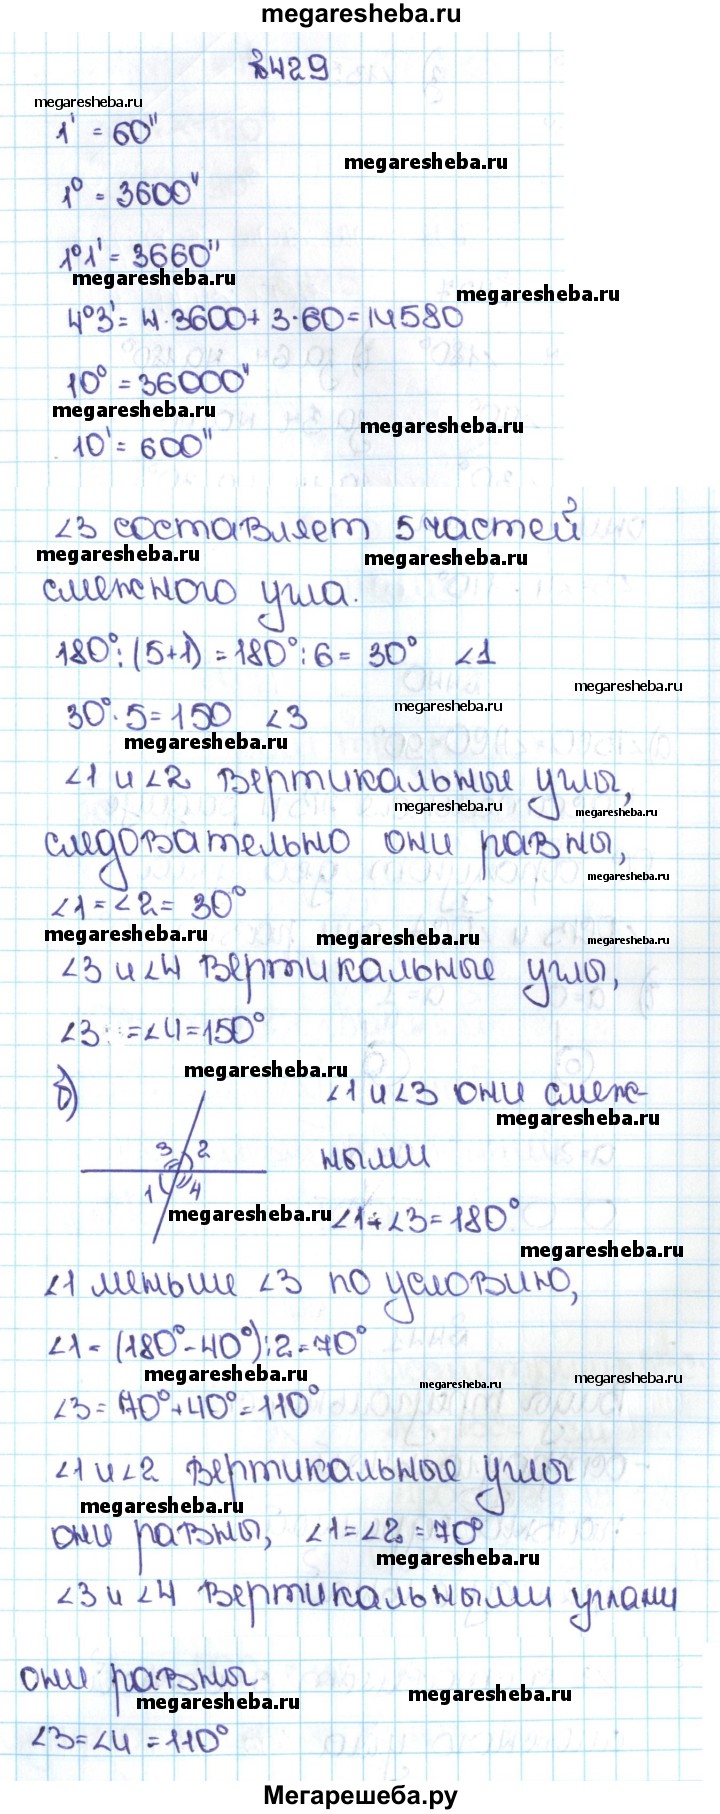 megaresheba.ru
№429
megaresheba.ru
1' = 60"
megaresheba.ru
1° = 3600"
1°1' = 3660"
megaresheba.ru
megaresheba.ru
4°3' = 4·3600+3·60=14580
10° = 36000"
megaresheba.ru
megaresheba.ru
10' = 600"
∠3 составляет 5 частей
megaresheba.ru
megaresheba.ru
смежного угла.
180°:(5+1) = 180°:6 = 30° ∠1
megaresheba.ru
megaresheba.ru
30°·5=150 ∠3
megaresheba.ru
∠1 и ∠2 вертикальные углы,
megaresheba.ru
megaresheba.ru
следовательно они равны,
megaresheba.ru
∠1=∠2= 30°
megaresheba.ru
megaresheba.ru
megaresheba.ru
∠3 и ∠4 вертикальные углы,
∠3 =∠4=150°
megaresheba.ru
б)
∠1 и ∠3 они смеж-
megaresheba.ru
ными
3 2
1 4
megaresheba.ru
∠1+∠3=180°
megaresheba.ru
∠1 меньше ∠3 по условию,
∠1= (180°-40°):2=70°
megaresheba.ru
megaresheba.ru
megaresheba.ru
∠3= 70°+40°=110°
∠1 и ∠2 вертикальные углы
megaresheba.ru
они равны, ∠1=∠2=70°
megaresheba.ru
∠3 и ∠4 вертикальными углами
они равны
megaresheba.ru
megaresheba.ru
∠3=∠4=110°
Мегарешеба.ру